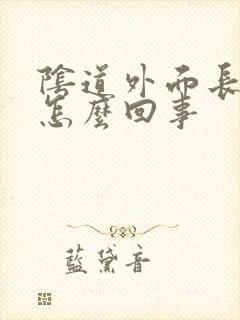 陰道外而長
怎麼回事
藍黛音